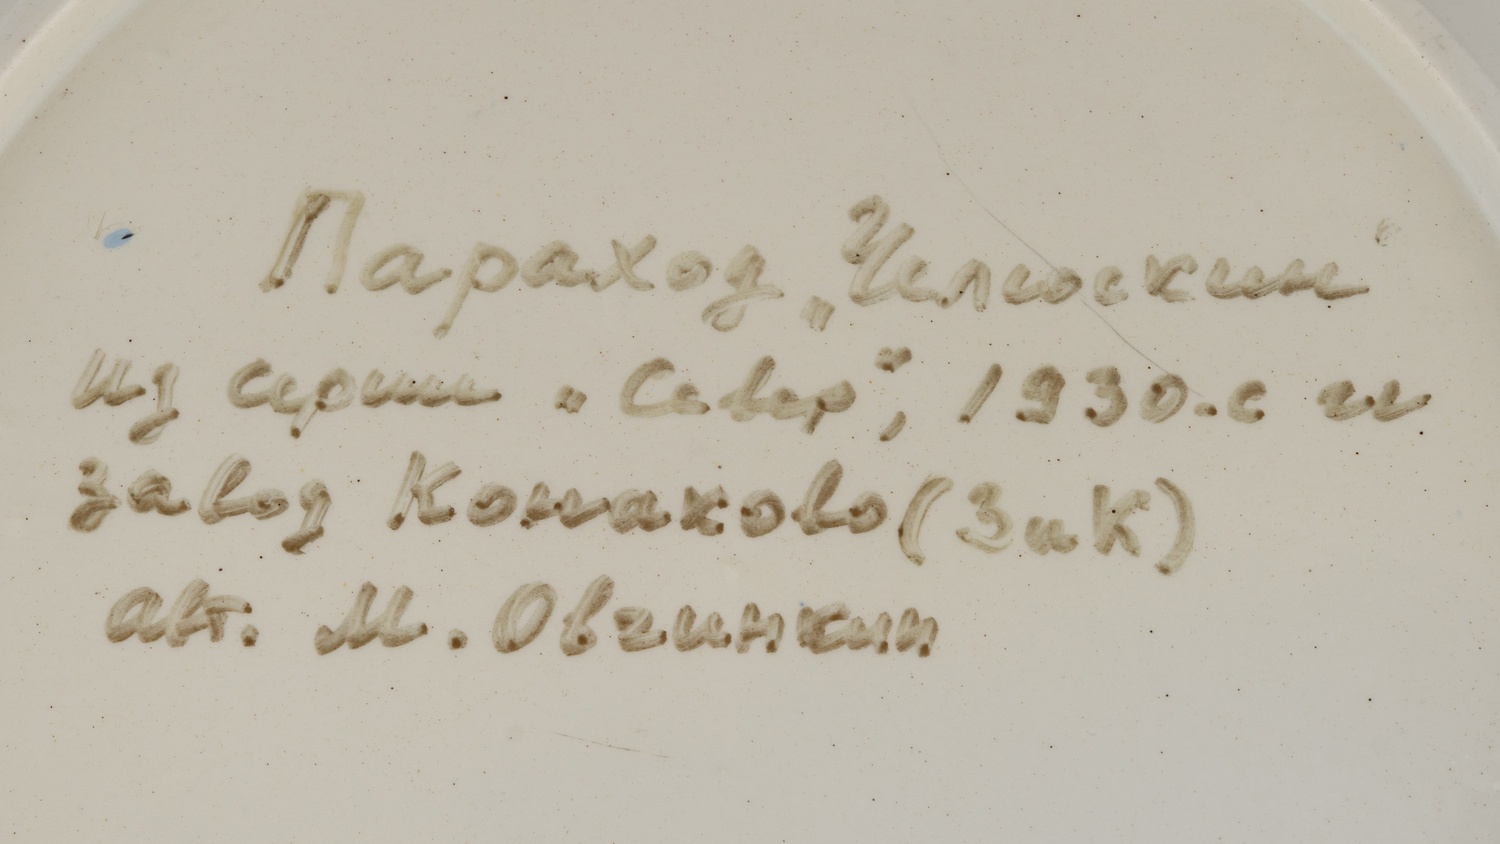 Параход „Челюскин"
из серии „Север", 1930.с гг
завод Конаково (ЗиК)
авт. М. Овчинкин